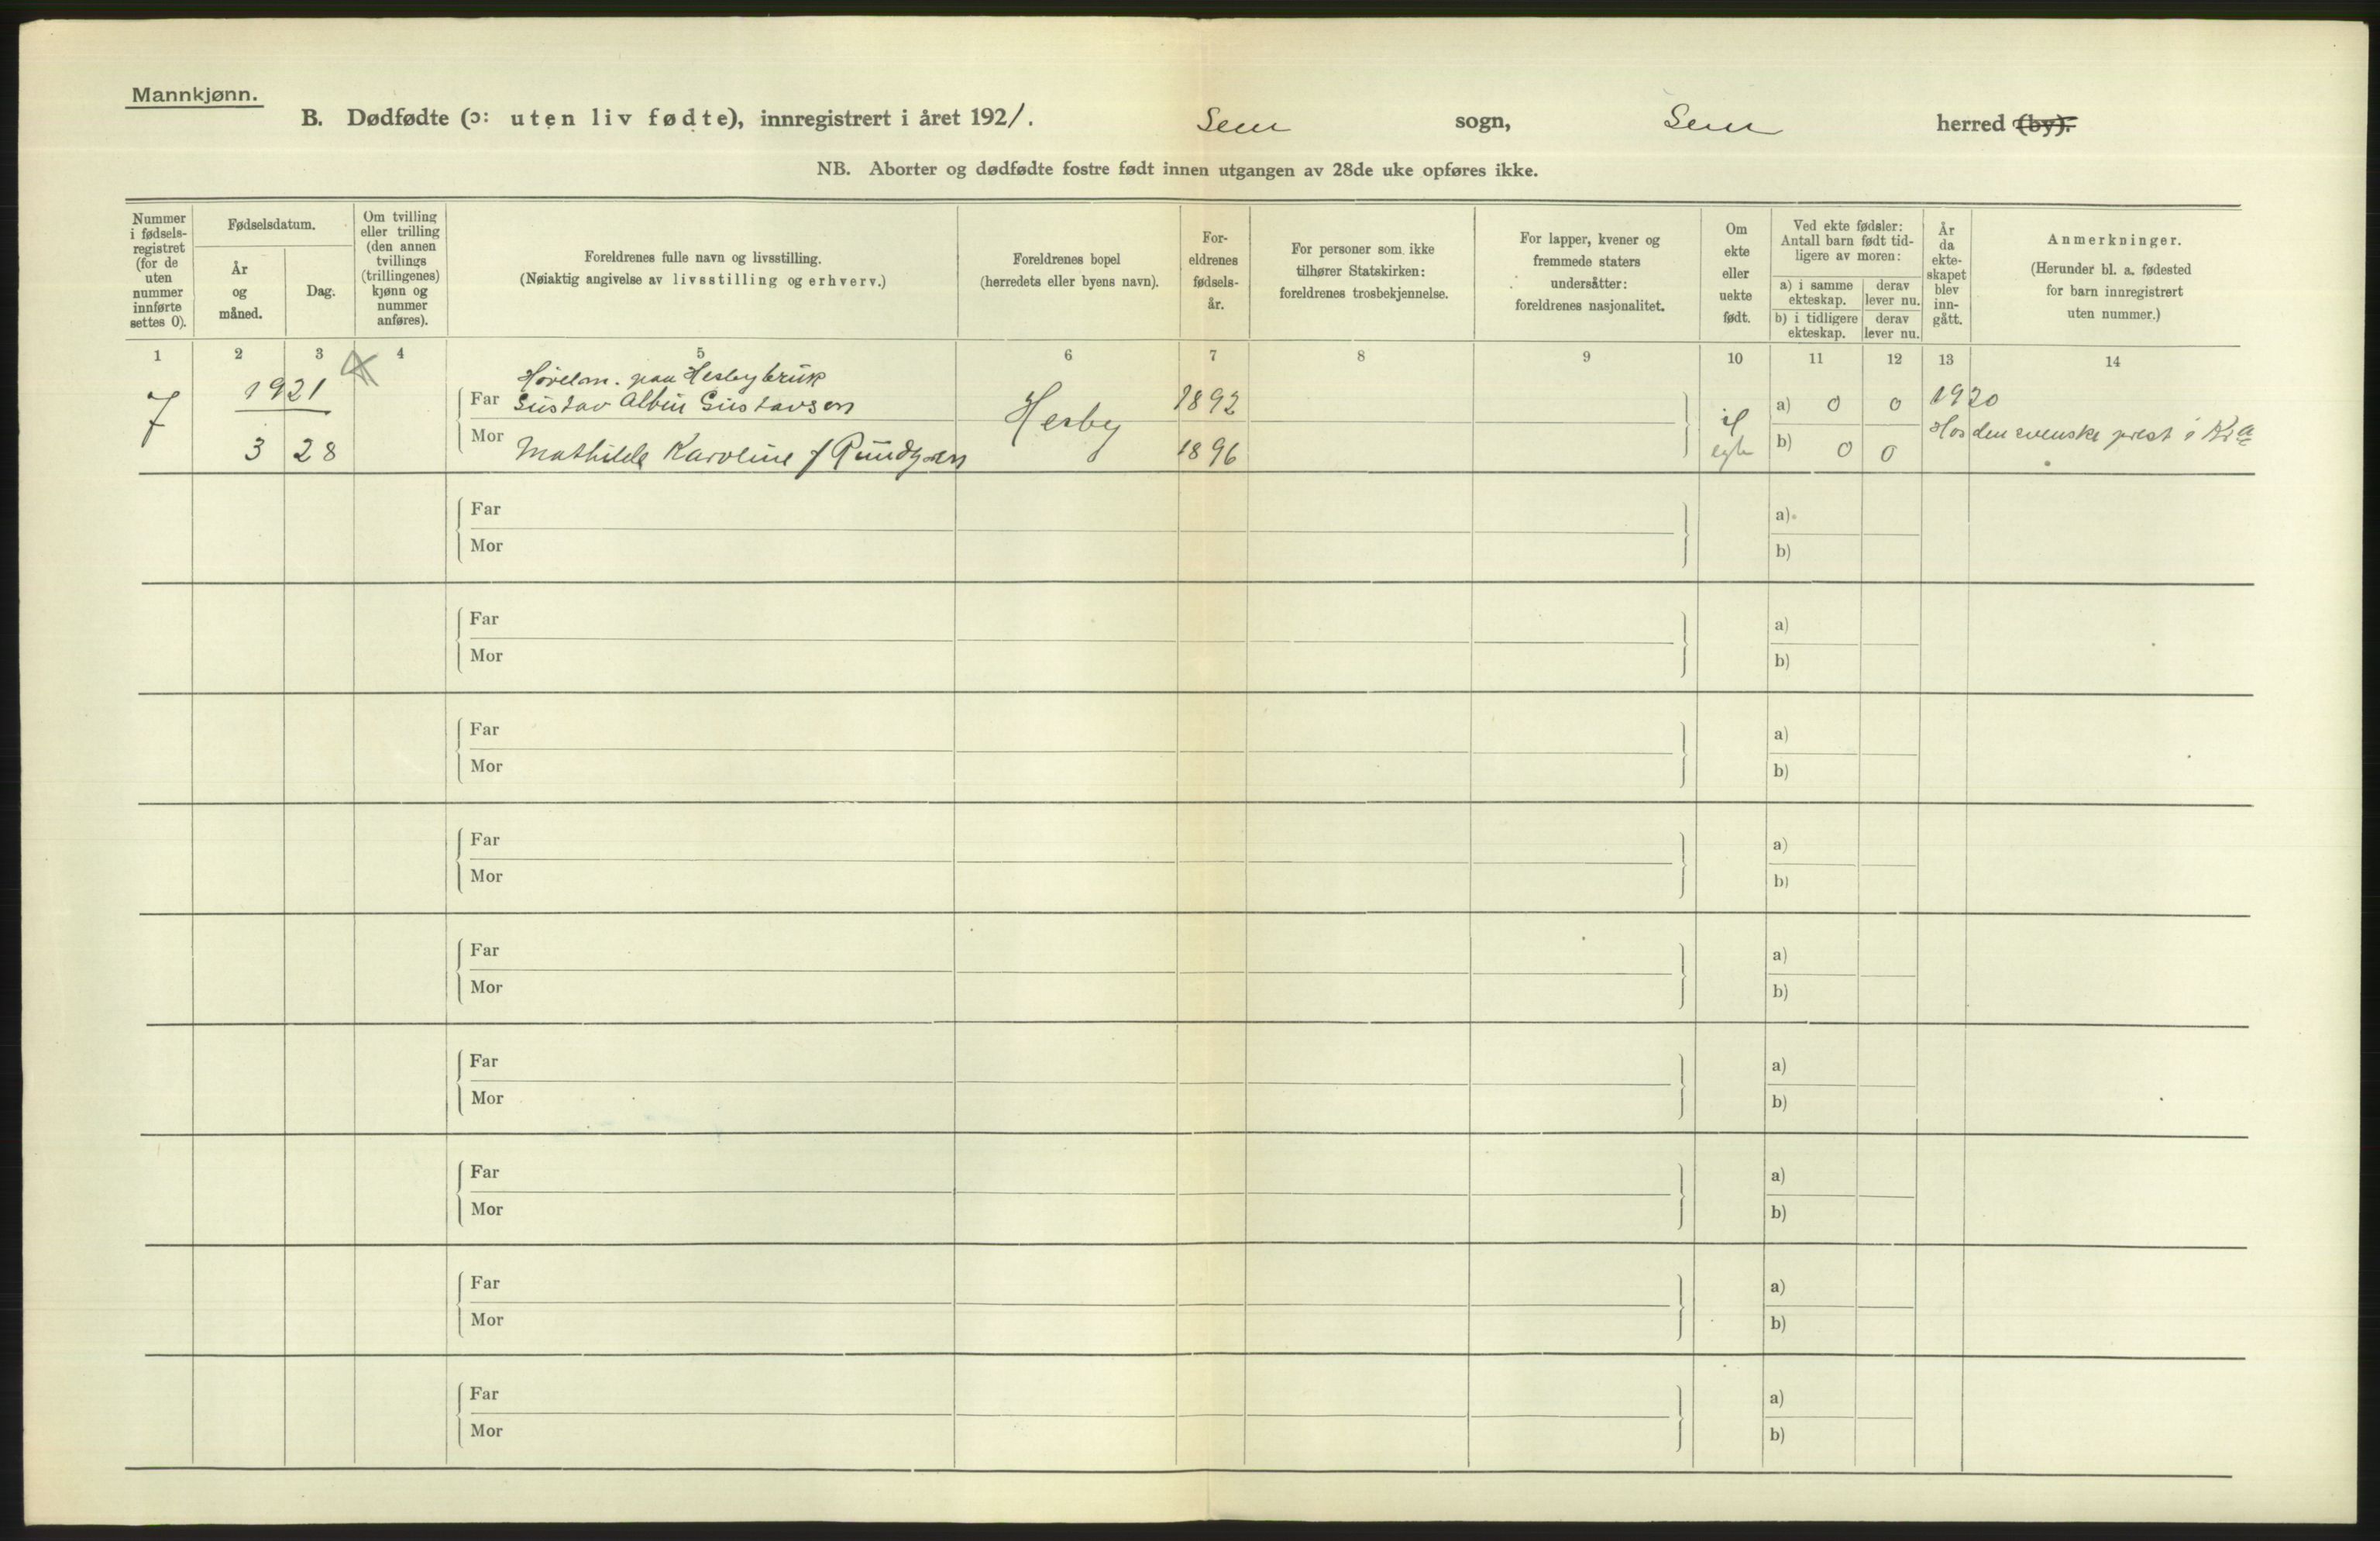 Mannkjønn.
B. Dødfødte (ɔ: uten liv fødte), innregistrert i året 1921. Sem sogn, Sem herred (by).
NB. Aborter og dødfødte fostre født innen utgangen av 28de uke opføres ikke.
Nummer i fødselsregistret (for de uten nummer innførte settes 0).
Fødselsdatum.
År og måned.
Dag.
Om tvilling eller trilling (den annen tvillings (trillingenes) kjønn og nummer anføres).
Foreldrenes fulle navn og livsstilling.
(Nøiaktig angivelse av livsstilling og erhverv.)
Foreldrenes bopel
(herredets eller byens navn).
Foreldrenes fødselsår.
For personer som ikke tilhører Statskirken: foreldrenes trosbekjennelse.
For lapper, kvener og fremmede staters undersåtter: foreldrenes nasjonalitet.
Om ekte eller uekte født.
Ved ekte fødsler: Antall barn født tidligere av moren:
a) i samme ekteskap.
derav lever nu.
b) i tidligere ekteskap.
derav lever nu.
År da ekteskapet blev inngått.
Anmerkninger.
(Herunder bl. a. fødested for barn innregistrert uten nummer.)
1 2 3 4 5 6 7 8 9 10 11 12 13 14
7 1921
3 28
Høvelm. paa Hesby bruk
Far Gustav Albin Gustavsen
Mor Mathilde Karoline f Rundgren
Hesby
1892
1896
egte
a) 0 0
b) 0 0
1920
Hos den svenske prest i Kra
Far
Mor
a)
b)
Far
Mor
a)
b)
Far
Mor
a)
b)
Far
Mor
a)
b)
Far
Mor
a)
b)
Far
Mor
a)
b)
Far
Mor
a)
b)
Far
Mor
a)
b)
Far
Mor
a)
b)